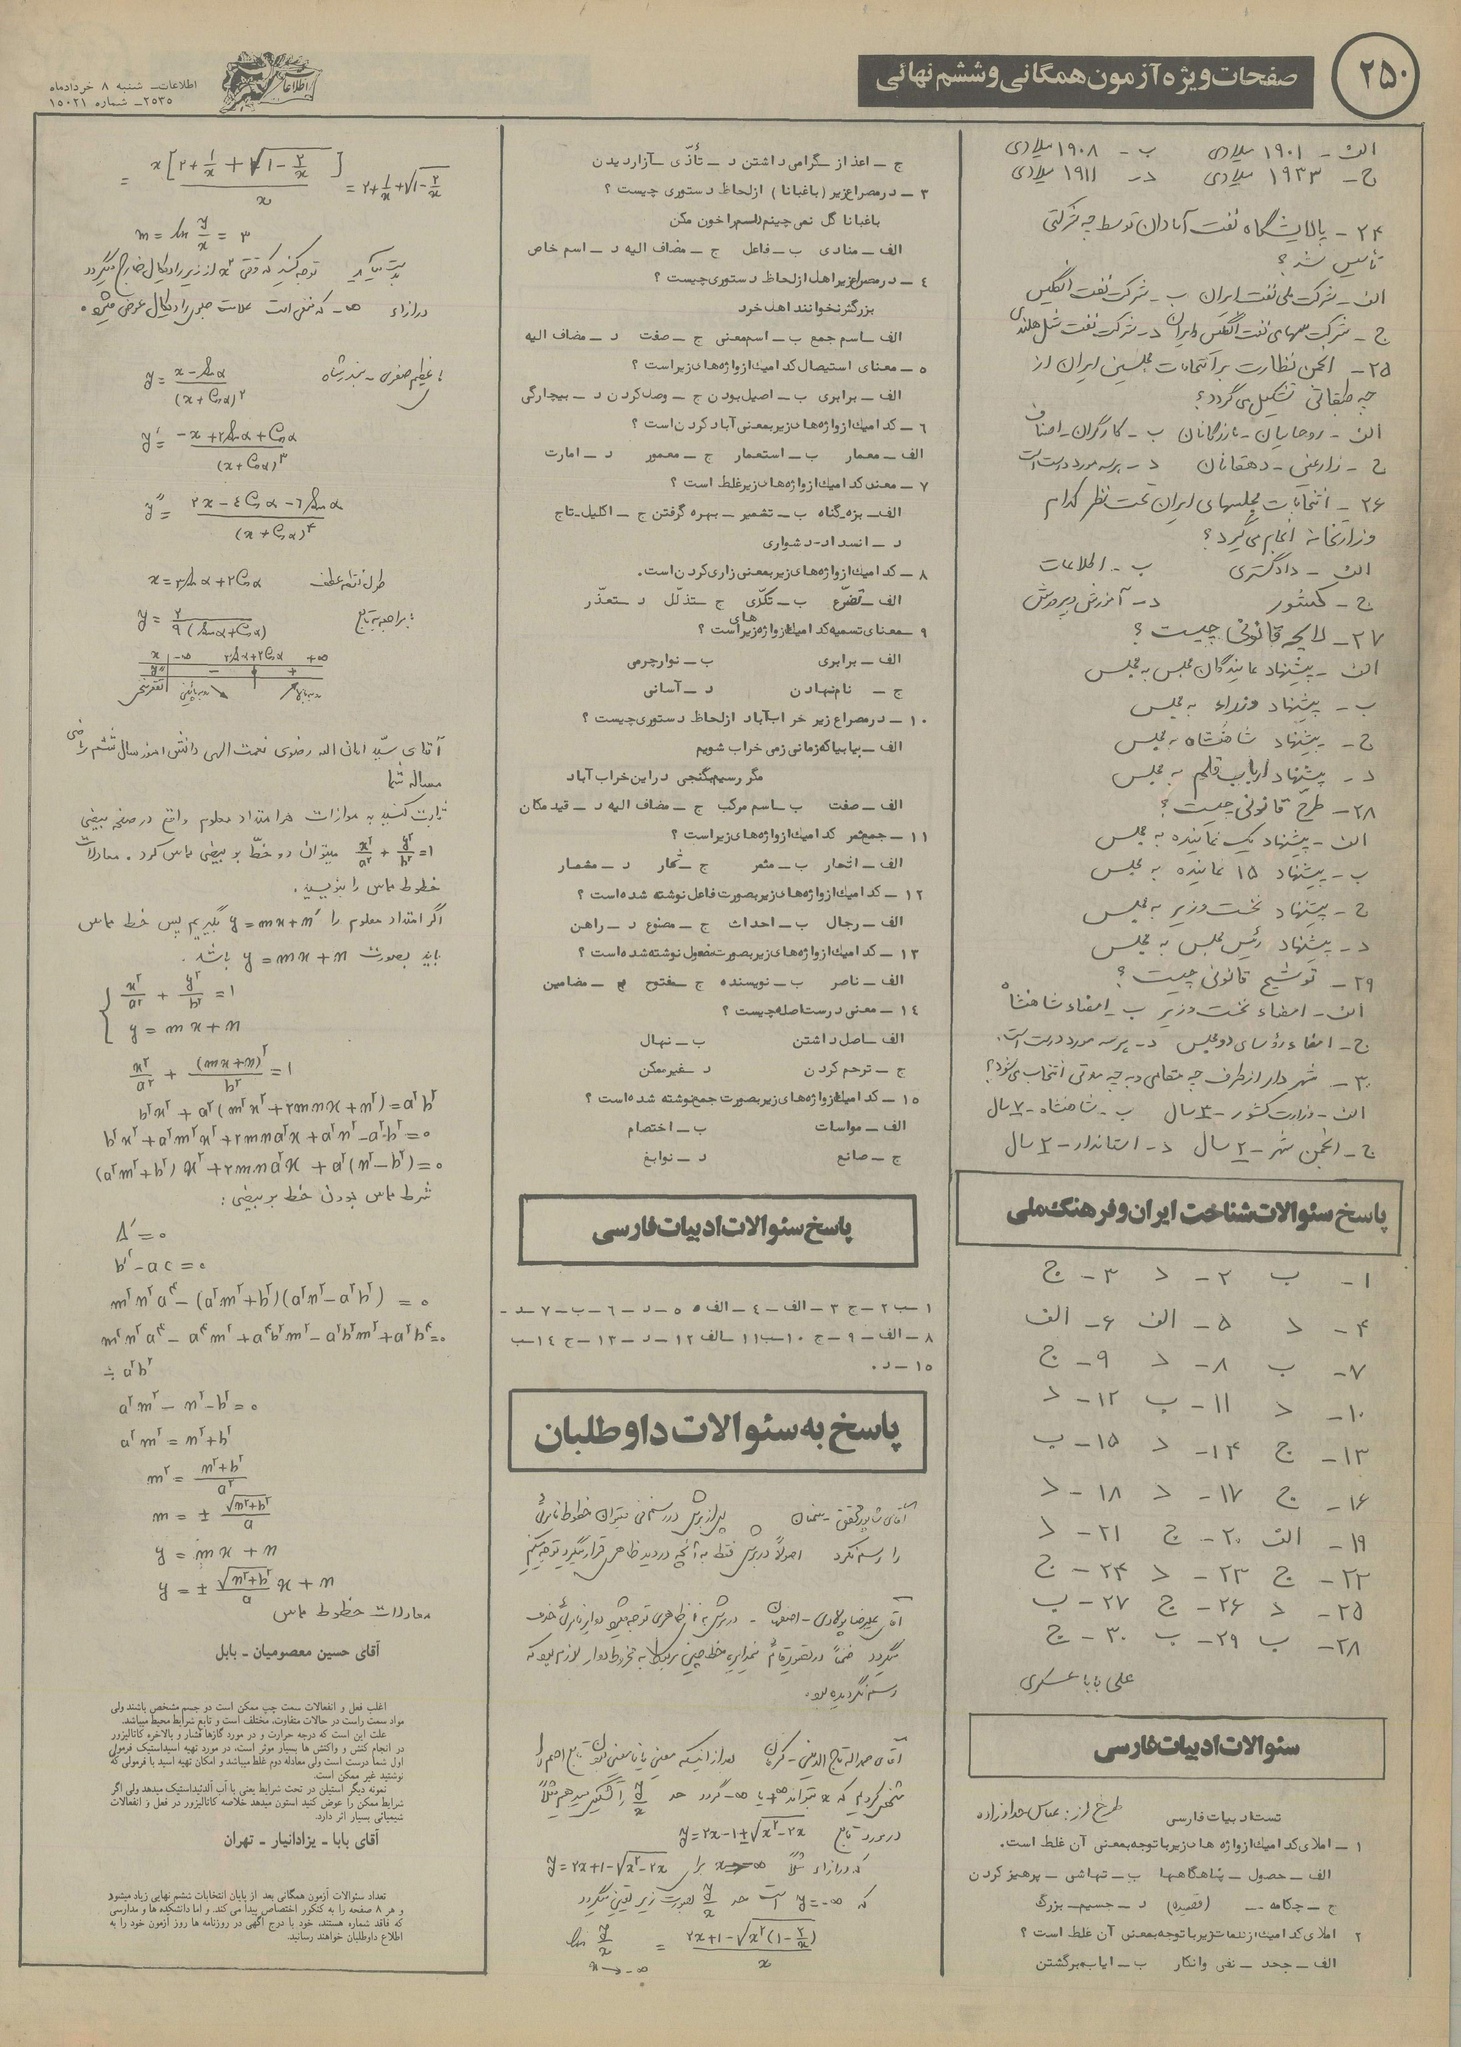 ۲۵۰
صفحات ویژه آزمون همگانی و ششم نهائی
اطلاعات
اطلاعات ـ شنبه ۸ خردادماه
۲۵۳۵ ـ شماره ۱۵۰۲۱
الف ـ ۱۹۰۱ میلادی ب ـ ۱۹۰۸ میلادی
ج ـ ۱۹۳۳ میلادی د ـ ۱۹۱۱ میلادی
۲۴ ـ پالایشگاه نفت آبادان توسط چه شرکتی
تأسیس شد؟
الف ـ شرکت ملی نفت ایران ب ـ شرکت نفت انگلیس
ج ـ شرکت سهامی نفت انگلیس و ایران د ـ شرکت نفت شل هلندی
۲۵ ـ انجمن نظارت بر انتخابات مجلسین ایران از
چه طبقاتی تشکیل می گردد؟
الف ـ روحانیان ـ بازرگانان ب ـ کارگران ـ اصناف
ج ـ زارعین ـ دهقانان د ـ هر سه مورد درست است
۲۶ ـ انتخابات مجلسهای ایران تحت نظر کدام
وزارتخانه انجام می گیرد؟
الف ـ دادگستری ب ـ اطلاعات
ج ـ کشور د ـ آموزش و پرورش
۲۷ ـ لایحه قانونی چیست؟
الف ـ پیشنهاد نمایندگان مجلس به مجلس
ب ـ پیشنهاد وزراء به مجلس
ج ـ پیشنهاد شاهنشاه به مجلس
د ـ پیشنهاد ارباب قلم به مجلس
۲۸ ـ طرح قانونی چیست؟
الف ـ پیشنهاد یک نماینده به مجلس
ب ـ پیشنهاد ۱۵ نماینده به مجلس
ج ـ پیشنهاد نخست وزیر به مجلس
د ـ پیشنهاد رئیس مجلس به مجلس
۲۹ ـ توشیح قانونی چیست؟
الف ـ امضاء نخست وزیر ب ـ امضاء شاهنشاه
ج ـ امضاء رؤسای دو مجلس د ـ هر سه مورد درست است
۳۰ ـ شهردار از طرف چه مقامی و به چه مدتی انتخاب می شود؟
الف ـ وزارت کشور ـ ۳ سال ب ـ شاهنشاه ـ ۷ سال
ج ـ انجمن شهر ـ ۲ سال د ـ استاندار ـ ۲ سال
پاسخ سئوالات شناخت ایران و فرهنگ ملی
۱ ـ ب ۲ ـ د ۳ ـ ج
۴ ـ د ۵ ـ الف ۶ ـ الف
۷ ـ ب ۸ ـ د ۹ ـ ج
۱۰ ـ د ۱۱ ـ ب ۱۲ ـ د
۱۳ ـ ج ۱۴ ـ د ۱۵ ـ ب
۱۶ ـ ج ۱۷ ـ د ۱۸ ـ د
۱۹ ـ الف ۲۰ ـ ج ۲۱ ـ د
۲۲ ـ ج ۲۳ ـ د ۲۴ ـ ج
۲۵ ـ د ۲۶ ـ ج ۲۷ ـ ب
۲۸ ـ ب ۲۹ ـ ب ۳۰ ـ ج
علی بابا عسکری
سئوالات ادبیات فارسی
تست ادبیات فارسی طرح از: عباس حدادزاده
۱ ـ املای کدامیک از واژه های زیر با توجه بمعنی آن غلط است.
الف ـ حصول ـ پناهگاهها ب ـ تهاشی ـ پرهیز کردن
ج ـ چکامه ـ (قصیده) د ـ جسیم ـ بزرگ
۲ املای کدامیک از کلمات زیر با توجه بمعنی آن غلط است؟
الف ـ جحد ـ نفی و انکار ب ـ ایاب ـ برگشتن
ج ـ اعذاز ـ گرامی داشتن د ـ تأذّی ـ آزار دیدن
۳ ـ در مصراع زیر (باغبانا) از لحاظ دستوری چیست؟
باغبانا گل نمی چینم دلم را خون مکن
الف ـ منادی ب ـ فاعل ج ـ مضاف الیه د ـ اسم خاص
٤ ـ در مصراع زیر اهل از لحاظ دستوری چیست؟
بزرگش نخوانند اهل خرد
الف ـ اسم جمع ب ـ اسم معنی ج ـ صفت د ـ مضاف الیه
۵ ـ معنای استیصال کدامیک از واژه های زیر است؟
الف ـ برابری ب ـ اصیل بودن ج ـ وصل کردن د ـ بیچارگی
٦ ـ کدامیک از واژه های زیر بمعنی آباد کردن است؟
الف ـ معمار ب ـ استعمار ج ـ معمور د ـ امارت
۷ ـ معنی کدامیک از واژه های زیر غلط است؟
الف ـ بزه ـ گناه ب ـ تشمیر ـ بهره گرفتن ج ـ اکلیل ـ تاج
د ـ انسداد ـ دشواری
۸ ـ کدامیک از واژه های زیر بمعنی زاری کردن است.
الف ـ تضرّع ب ـ تکدّی ج ـ تذلّل د ـ تعذّر
۹ ـ معنای تسمیه کدامیک از واژه های زیر است؟
الف ـ برابری ب ـ نوار چرمی
ج ـ نام نهادن د ـ آسانی
۱۰ ـ در مصراع زیر خراب آباد از لحاظ دستوری چیست؟
الف ـ بیا بیا که زمانی ز می خراب شویم
مگر رسیم بگنجی در این خراب آباد
الف ـ صفت ب ـ اسم مرکب ج ـ مضاف الیه د ـ قید مکان
۱۱ ـ جمع ثمر کدامیک از واژه های زیر است؟
الف ـ اثمار ب ـ مثمر ج ـ ثمار د ـ مشمار
۱۲ ـ کدامیک از واژه های زیر بصورت فاعل نوشته شده است؟
الف ـ رجال ب ـ احداث ج ـ مصنوع د ـ راهن
۱۳ ـ کدامیک از واژه های زیر بصورت مفعول نوشته شده است؟
الف ـ ناصر ب ـ نویسنده ج ـ مفتوح د ـ مضامین
۱٤ ـ معنی درست اصله چیست؟
الف ـ اصل داشتن ب ـ نهال
ج ـ ترحم کردن د ـ غیر ممکن
۱۵ ـ کدامیک از واژه های زیر بصورت جمع نوشته شده است؟
الف ـ مواسات ب ـ اختصام
ج ـ صانع د ـ نوابغ
پاسخ سئوالات ادبیات فارسی
۱ ـ ب ۲ ـ ج ۳ ـ الف ـ ٤ ـ الف ۵ ـ د ـ ٦ ـ ب ـ ۷ ـ د ـ
۸ ـ الف ـ ۹ ـ ج ۱۰ ـ ب ۱۱ ـ الف ۱۲ ـ د ـ ۱۳ ـ ج ۱٤ ـ ب
۱۵ ـ د.
پاسخ به سئوالات داوطلبان
آقای شاپور محقق ـ سمنان
را رسم نکرد اصولاً در برش فقط به آنچه در دید ظاهر قرار میگیرد توجه میکنیم
رسم نگردیده بود.
در مورد تابع y=۲x-۱±√x²-۲x
که در ازاء مثلاً x→-∞ برای y=۲x+۱-√x²-۲x
که y=-∞ است حد y/x بصورت زیر تعیین میگردد
lim y/x = ۲x+۱-√x²(۱-۲/x) / x
x→-∞
= x[۲+۱/x+√۱-۲/x] / x = ۲+۱/x+√۱-۲/x
m = lim y/x = ۳
بدست میآید توجه کنید که وقتی x² از زیر رادیکال خارج میگردد
در ازاء -∞ که منفی است علامت جلوی رادیکال عوض میشود.
y = x - Sinα / (x+Cosα)²
y′ = -x+۲Sinα+Cosα / (x+Cosα)³
y″ = ۲x-٤Cosα-٦Sinα / (x+Cosα)⁴
طول نقطه عطف x=۳Sinα+۲Cosα
y = ۲ / ۹(Sinα+Cosα)
x | -∞ ۳Sinα+۲Cosα +∞
y″ | - ۰ +
آقای سید امان اله رضوی نعمت الهی دانش آموز سال ششم ریاضی
مساله شما
ثابت کنید به موازات هر امتداد معلوم واقع در صفحه بیضی
x²/a² + y²/b² = ۱ میتوان دو خط بر بیضی مماس کرد. معادلات
خطوط مماس را بنویسید.
اگر امتداد معلوم را y=mx+n′ بگیریم پس خط مماس
باید بصورت y=mx+n باشد.
x²/a² + y²/b² = ۱
y = mx+n
x²/a² + (mx+n)²/b² = ۱
b²x² + a²(m²x²+۲mnx+n²) = a²b²
b²x²+a²m²x²+۲mna²x+a²n²-a²b²=۰
(a²m²+b²)x²+۲mna²x+a²(n²-b²)=۰
شرط مماس بودن خط بر بیضی:
Δ′=۰
b′²-ac=۰
m²n²a⁴-(a²m²+b²)(a²n²-a²b²)=۰
m²n²a⁴-a⁴m²+a⁴b²m²-a²b²m²+a²b⁴=۰
÷ a²b²
a²m²-n²-b²=۰
a²m²=n²+b²
m² = n²+b² / a²
m = ± √n²+b² / a
y = mx+n
y = ± √n²+b² / a x+n
معادلات خطوط مماس
آقای حسین معصومیان ـ بابل
اغلب فعل و انفعالات سمت چپ ممکن است دو جسم مشخص باشند ولی
مواد سمت راست در حالات متفاوت، مختلف است و تابع شرایط محیط میباشد.
علت این است که درجه حرارت و در مورد گازها فشار و بالاخره کاتالیزور
در انجام کنش و واکنش ها بسیار موثر است، در مورد تهیه اسیداستیک فرمولی
اول شما درست است ولی معادله دوم غلط میباشد و امکان تهیه اسید با فرمولی که
نوشتید غیر ممکن است.
نمونه دیگر استیلن در تحت شرایط یعنی با آب آلدئیداستیک میدهد ولی اگر
شرایط ممکن را عوض کنید استون میدهد خلاصه کاتالیزور در فعل و انفعالات
شیمیائی بسیار اثر دارد.
آقای بابا ـ یزدانیار ـ تهران
تعداد سئوالات آزمون همگانی بعد از پایان انتخابات ششم نهایی زیاد میشود
و هر ۸ صفحه را به کنکور اختصاص پیدا می کند. و اما دانشکده ها و مدارسی
که فاقد شماره هستند، خود با درج آگهی در روزنامه ها روز آزمون خود را به
اطلاع داوطلبان خواهند رسانید.